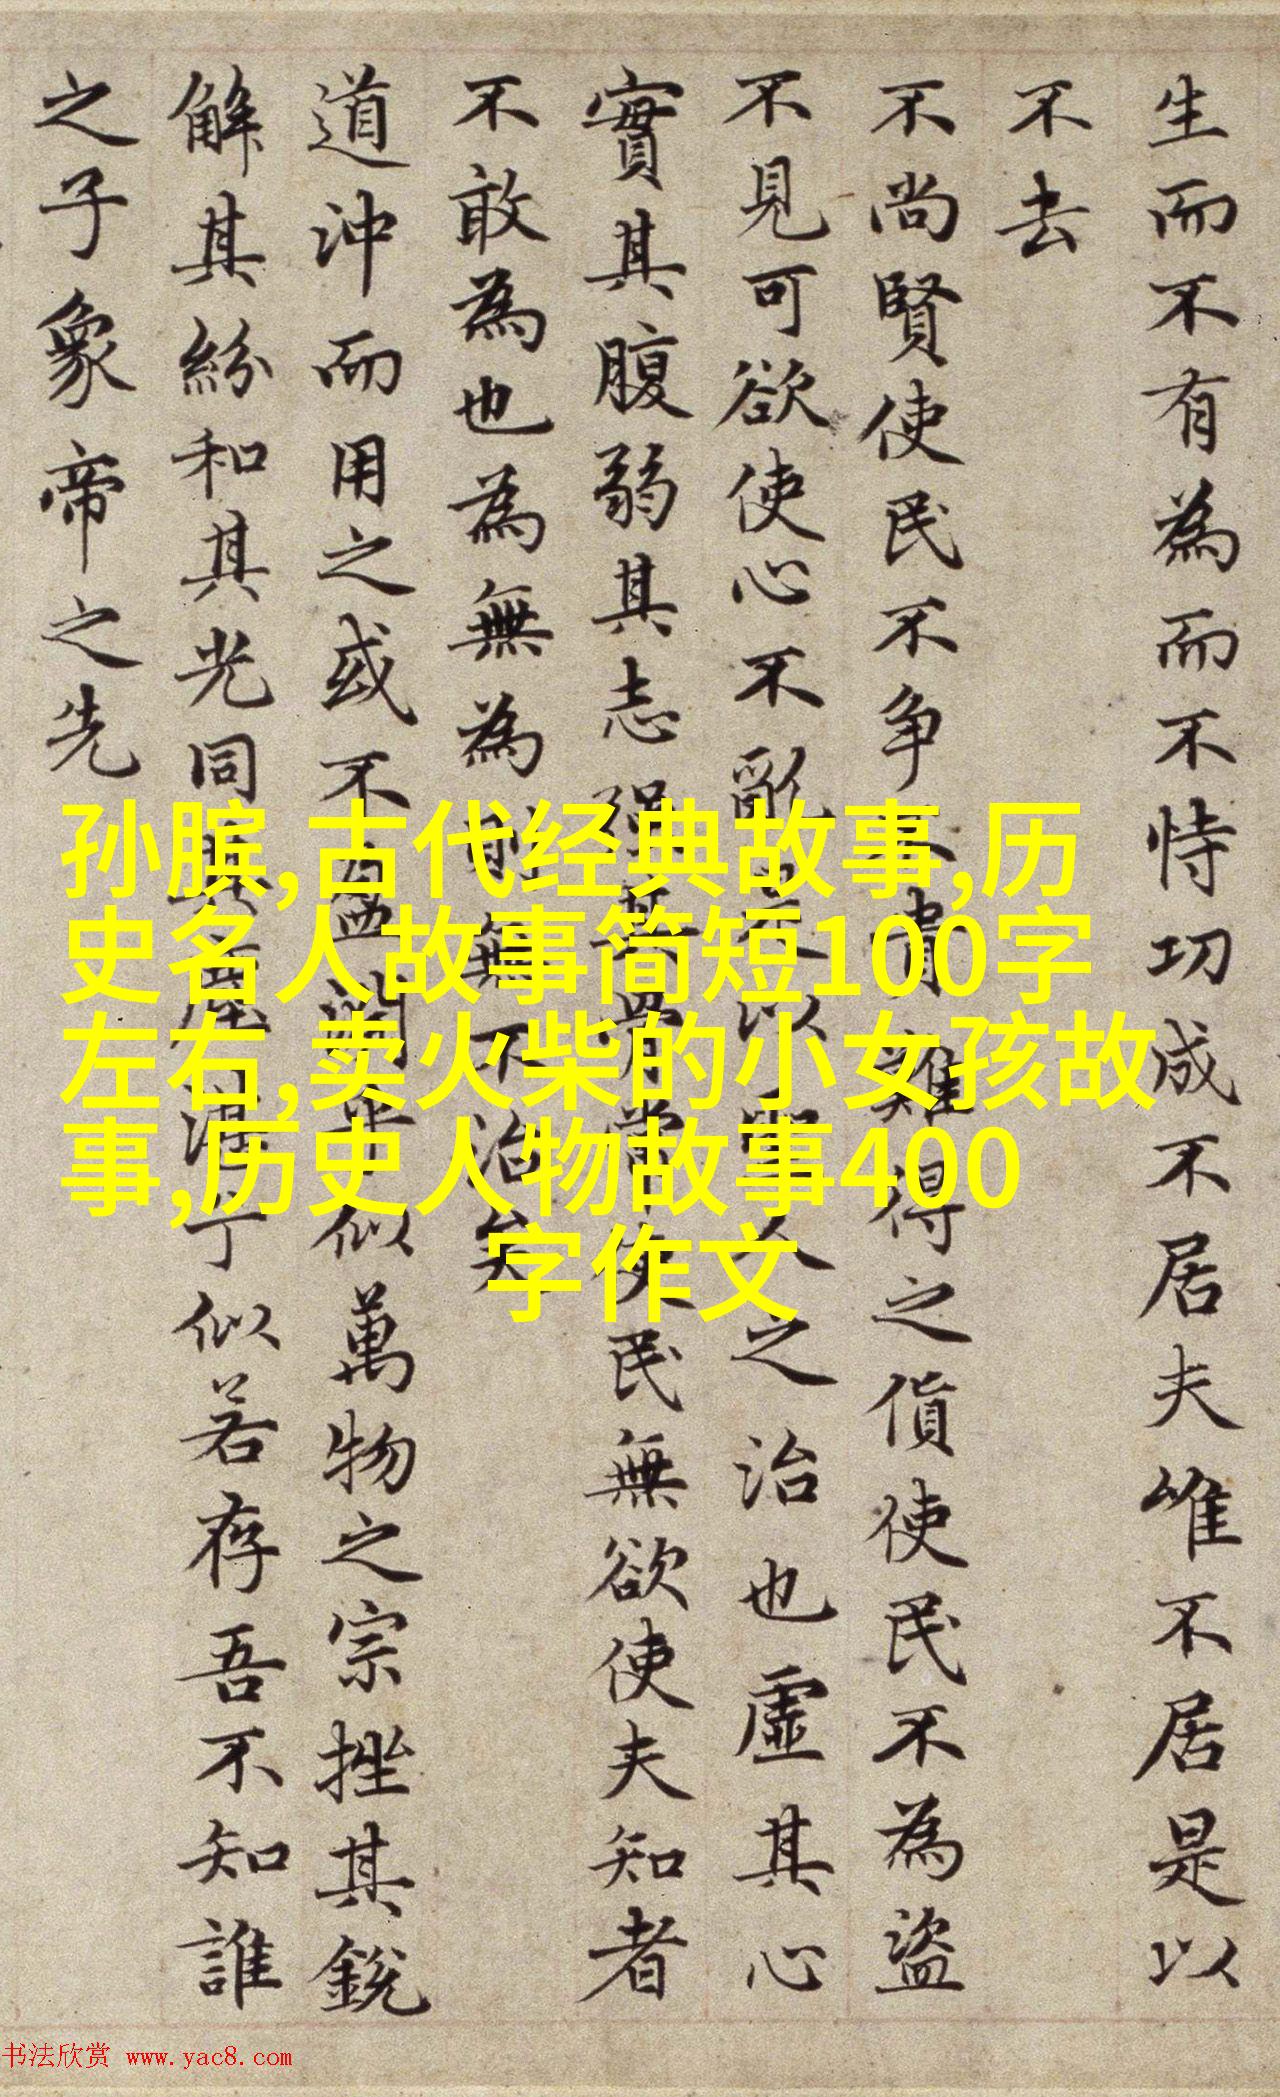 生而不有為而不恃功成不居夫唯不居是以
不去
不尚賢使民不争不貴難得之貨使民不為盜
不見可欲使心不亂是以聖人之治也虛其心
實其腹弱其志強其骨常使民無欲使夫知者
不敢為也為無為則無不治矣
道沖而用之或不盈淵乎似萬物之宗挫其銳
解其紛和其光同其塵湛兮似若存吾不知誰
之子象帝之先
孙膑,古代经典故事,历
史名人故事简短100字
左右,卖火柴的小女孩故
事,历史人物故事400
字作文
书法欣赏 www.yac8.com